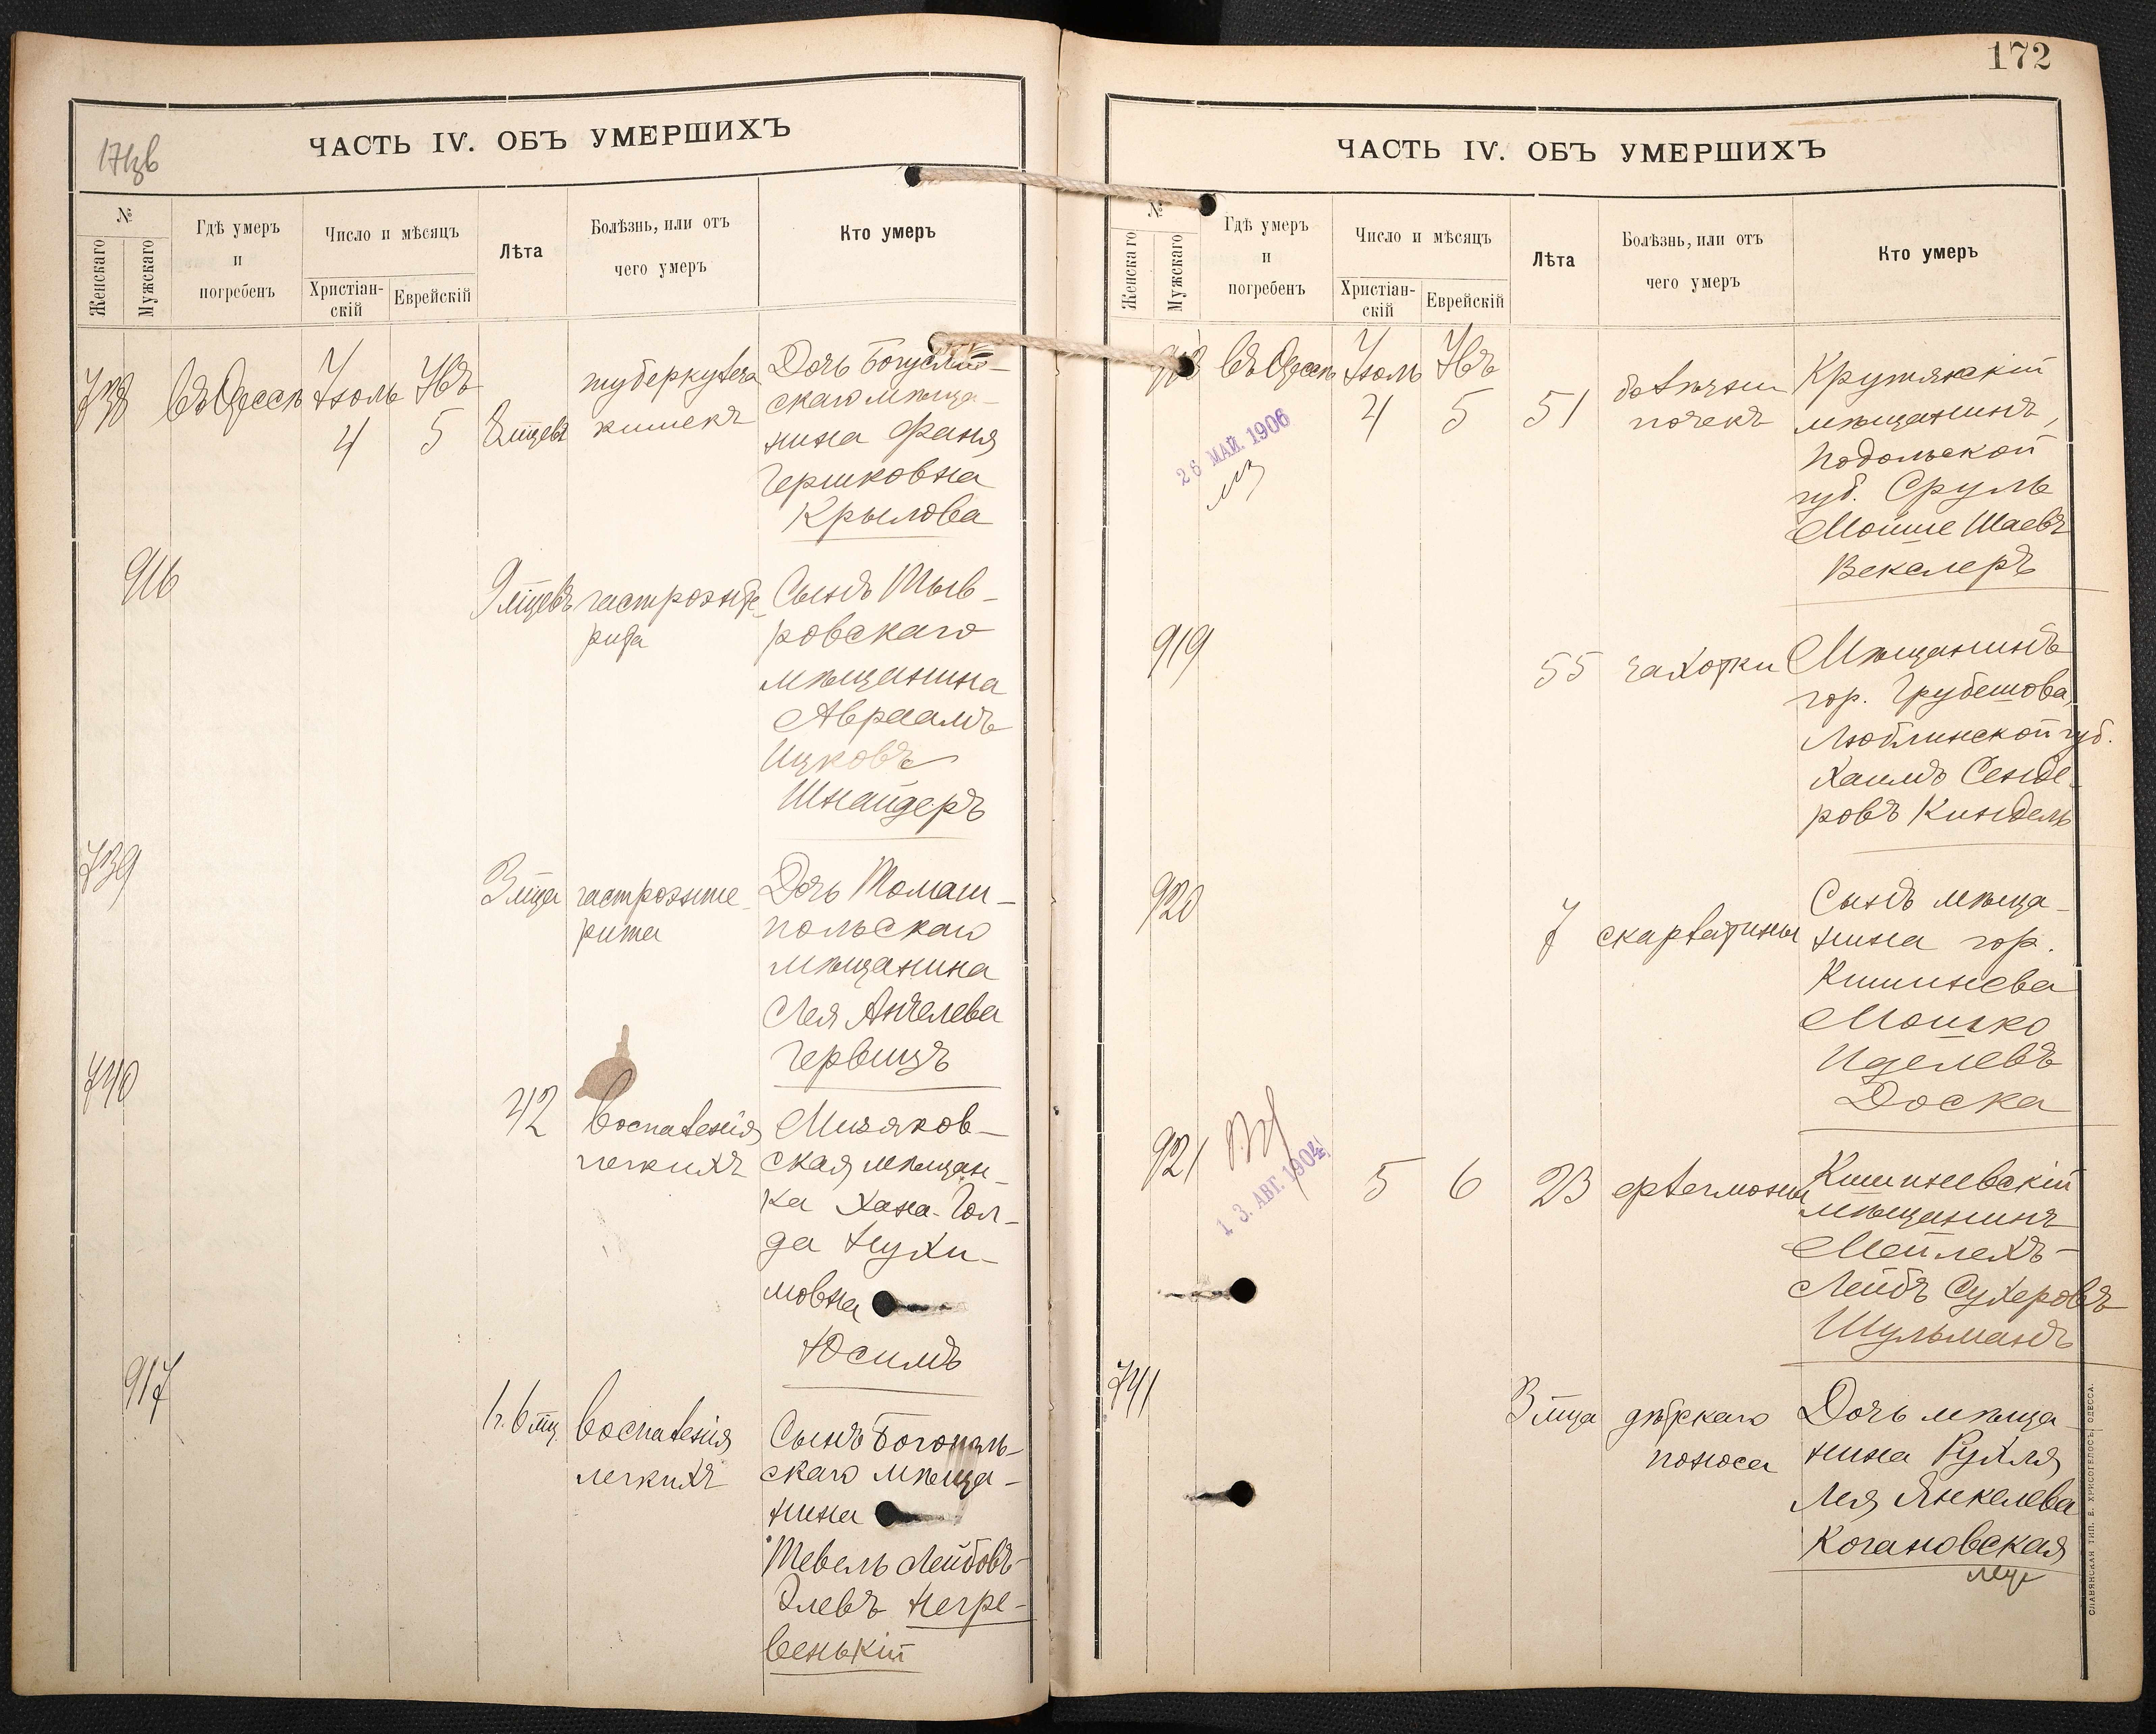 ЧАСТЬ IV. ОБЪ УМЕРШИХЪ
№
Женскаго
Мужскаго
Гдѣ умеръ
и
погребенъ
Число и мѣсяцъ
Христіан-
скій
Еврейскій
Лѣта
Болѣзнь, или отъ
чего умеръ
Кто умеръ
738
въ Одессѣ
Іюль
4
Авъ
5
8 мцевъ
туберкулеза
кишекъ
Дочь Богуслав-
скаго мѣща-
нина Фаня
Гершковна
Крылова
916
9 мцевъ
гастроэнте-
рита
Сынъ Тыв-
ровскаго
мѣщанина
Авраамъ
Ицковъ
Шнайдеръ
739
3 мца
гастроэнте-
рита
Дочь Томаш-
польскаго
мѣщанина
Лея Анчелева
Гервицъ
740
42
воспаленія
легкихъ
Мизяков-
ская мѣщан-
ка Хана-Гол-
да Нухи-
мовна
Юсимъ
917
1 г. 6 мц.
воспаленія
легкихъ
Сынъ Богополь-
скаго мѣща-
нина
Тевель Лейбовъ-
Элевъ Негре-
венькій
172
ЧАСТЬ IV. ОБЪ УМЕРШИХЪ
№
Женскаго
Мужскаго
Гдѣ умеръ
и
погребенъ
Число и мѣсяцъ
Христіан-
скій
Еврейскій
Лѣта
Болѣзнь, или отъ
чего умеръ
Кто умеръ
918
въ Одессѣ
Іюль
4
Авъ
5
51
болѣзни
почекъ
Крутянскій
мѣщанинъ,
Подольской
губ. Сруль
Мойше Шаевъ
Векслеръ
26 МАЙ. 1906
919
55
чахотки
Мѣщанинъ
гор. Грубешова,
Люблинской губ.
Хаимъ Сенде-
ровъ Киндель
920
7
скарлатины
Сынъ мѣща-
нина гор.
Кишинева
Мошко
Иделевъ
Доска
921
13. АВГ. 1904
5
6
23
флегмоны
Кишиневскій
мѣщанинъ
Мейлехъ-
Лейбъ Сухеровъ
Шульманъ
741
3 мца
дѣтскаго
поноса
Дочь мѣща-
нина Рухля
Лея Янкелева
Когановская
СЛАВЯНСКАЯ ТИП. Е. ХРИСОГЕЛОСЪ, ОДЕССА.